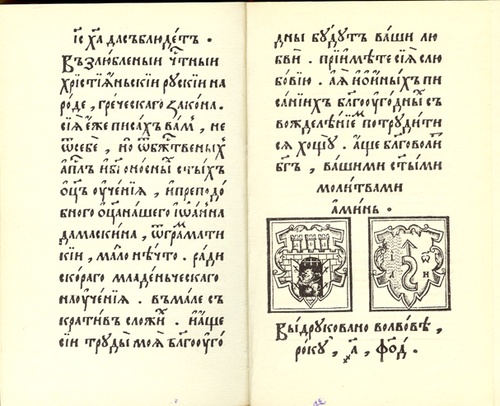 і҃с х҃а да съблюдетъ .
Възлюбленыи чⷭ҇тныи
хрїстїѧ́ньскїи рꙋскїи на
ро́де , греческаго ꙁако́на .
сїѧ̀ є҆́же писахъ ва́мъ , не
ѿ себѐ , но ѿ бж҃ественыхъ
а҆пⷭ҇лъ и҆ бг҃оно́сныⷯ ст҃ыхъ
ѻ҆ц҃ъ ᲂу҆че́нїѧ , и҆ преподо́
бного ѻ҆ц҃а на́шего і҆ѡа́нна
дамаски́на , ѿ гра́матⷨи
кїи , мало нѣ́что . ра́ди
ско́раго младе́ньческаго
наᲂуче́нїѧ . въ ма́ле съ
крати́въ сложи́хъ . и҆ а҆́ще
сїи трꙋды̀ моѧ̀ бл҃гоᲂуго́
дны бꙋ́дꙋтъ ва́ши лю
бви̑ . прїимѣ́те сїѧ̀ с лю
бо́вїю . а҆ ѧ҆̀ и҆ о҆ и҆́ныхъ пи
са́нїиⷯ бл҃гоᲂуго́дныⷯ съ
вожделѣ́нїеⷨ потрꙋди́ти
сѧ хощꙋ̀ . а҆́ще бл҃говоли́тъ
бг҃ъ , ва́шими ст҃ы́ми
моли́твами
а҆ми́нь .
ѡ
и н
Вы́дрꙋковано во лво́вѣ ,
ро́кꙋ , ҂а҃ , ф҃о҃д .